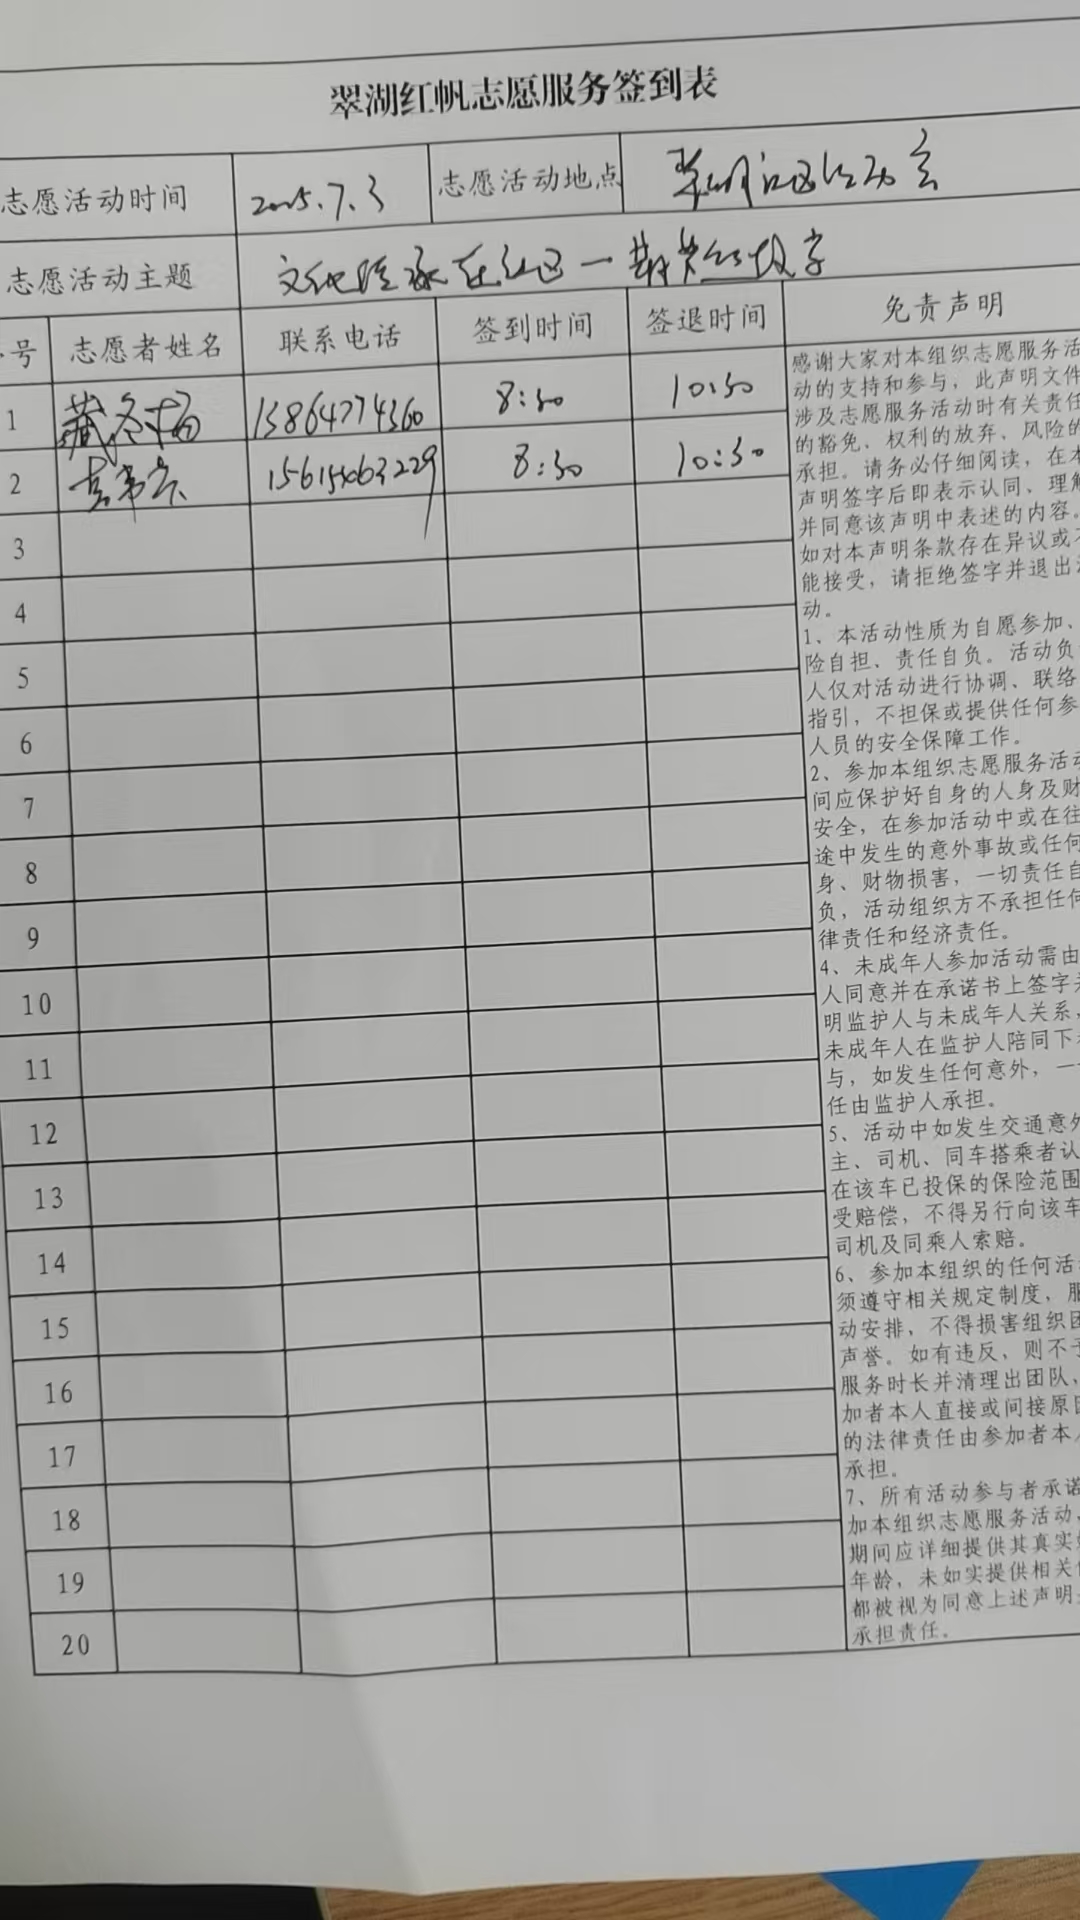 翠湖红帆志愿服务签到表
志愿活动时间 2025.7.3 志愿活动地点 翠湖社区活动室
志愿活动主题 文化传承在社区一
号 志愿者姓名 联系电话 签到时间 签退时间 免责声明
1 13864774360 8:30 10:30
2 8:30 10:30
3
4
5
6
7
8
9
10
11
12
13
14
15
16
17
18
19
20
感谢大家对本组织志愿服务活
动的支持和参与，此声明文件
涉及志愿服务活动时有关责任
的豁免、权利的放弃、风险的
承担。请务必仔细阅读，在本
声明签字后即表示认同、理解
并同意该声明中表述的内容。
如对本声明条款存在异议或不
能接受，请拒绝签字并退出活
动。
1、本活动性质为自愿参加、
险自担、责任自负。活动负
人仅对活动进行协调、联络
指引，不担保或提供任何参
人员的安全保障工作。
2、参加本组织志愿服务活动
间应保护好自身的人身及财
安全，在参加活动中或在往
途中发生的意外事故或任何
身、财物损害，一切责任自
负，活动组织方不承担任何
律责任和经济责任。
4、未成年人参加活动需由
人同意并在承诺书上签字并
明监护人与未成年人关系，
未成年人在监护人陪同下
与，如发生任何意外，一
任由监护人承担。
5、活动中如发生交通意外
主、司机、同车搭乘者认
在该车已投保的保险范围
受赔偿，不得另行向该车
司机及同乘人索赔。
6、参加本组织的任何活
须遵守相关规定制度，服
动安排，不得损害组织团
声誉。如有违反，则不予
服务时长并清理出团队，
加者本人直接或间接原因
的法律责任由参加者本人
承担。
7、所有活动参与者承诺
加本组织志愿服务活动，
期间应详细提供其真实
年龄，未如实提供相关
都被视为同意上述声明
承担责任。